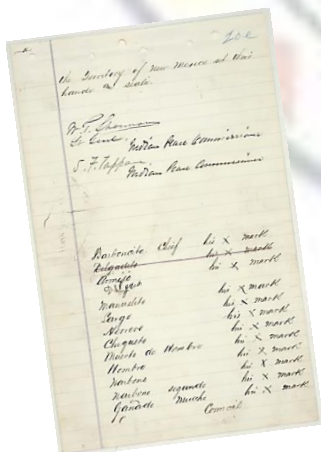 the Territory of New Mexico set their
hands and seals.
W. T. Sherman
Lt Genl. Indian Peace Commissioner
S. F. Tappan
Indian Peace Commissioner
Barboncito Chief his X mark
Delgadito his X mark
Armijo his X mark
Manuelito his X mark
Largo his X mark
Herrero his X mark
Chiqueto his X mark
Muerto de Hombre his X mark
Hombro his X mark
Narbono his X mark
Narbono segundo his X mark
Ganado Mucho his X mark
Council